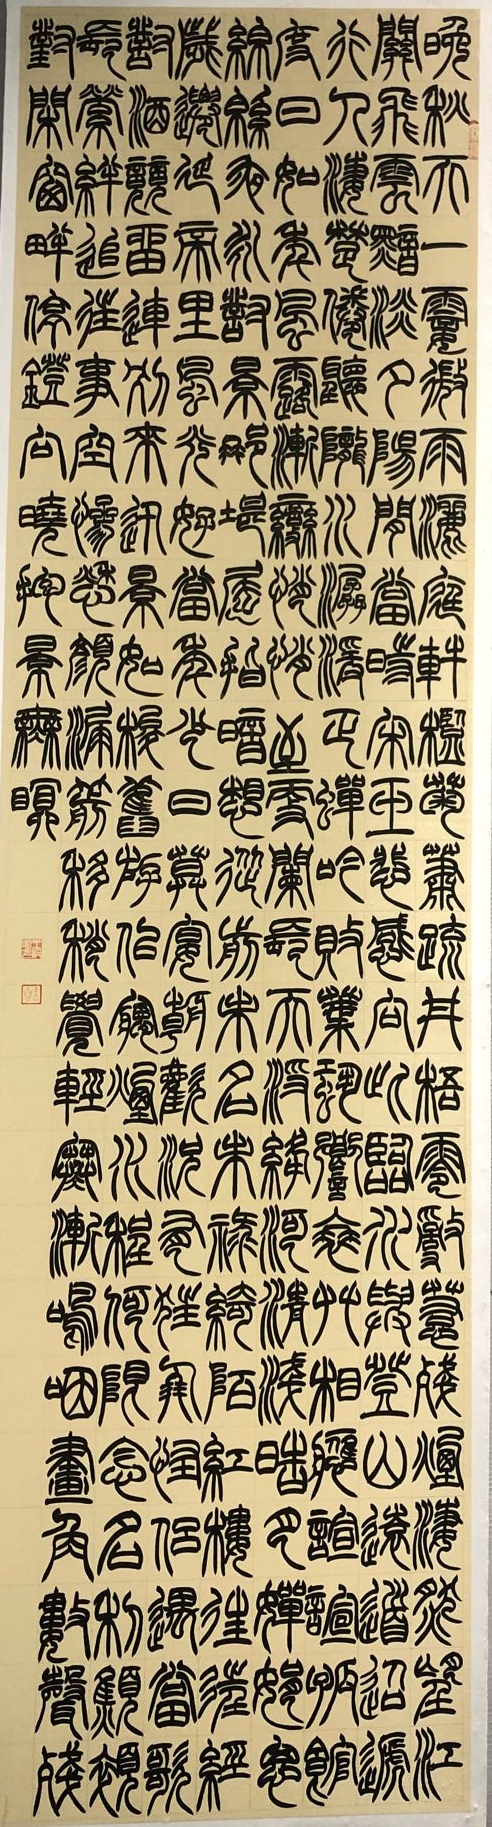 晚秋天一霎微雨灑庭軒檻菊蕭疏井梧零亂惹殘煙淒然望江
關飛雲黯淡夕陽間當時宋玉悲感向此臨水與登山遠道迢遞
行人淒楚倦聽隴水潺湲正蟬吟敗葉蛩響衰草相應喧喧孤館
度日如年風露漸變悄悄至更闌長天淨絳河清淺皓月嬋娟思
綿綿夜永對景那堪屈指暗想從前未名未祿綺陌紅樓往往經
歲遷延帝里風光好當年少日莫宴朝歡況有狂朋怪侶遇當歌
對酒競留連別來迅景如梭舊游似夢煙水程何限念名利顦顇
長縈絆追往事空慘愁顏漏箭移稍覺輕寒漸嗚咽畫角數聲殘
對閑窗畔停鐙向曉抱景無瞑